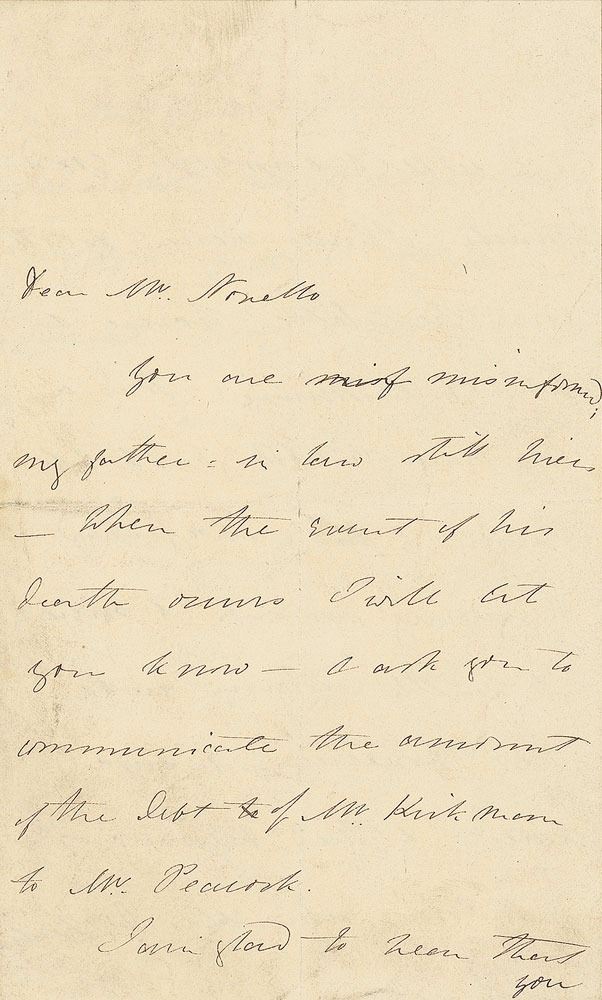 Dear Mr. Novello
You are misf misinformed;
my father = in law still lives
— When the event of his
death occurs I will let
you know — & ask you to
communicate the amount
of the debt to of Mr. Kirkman
to Mr. Peacock.
I am glad to hear that
you